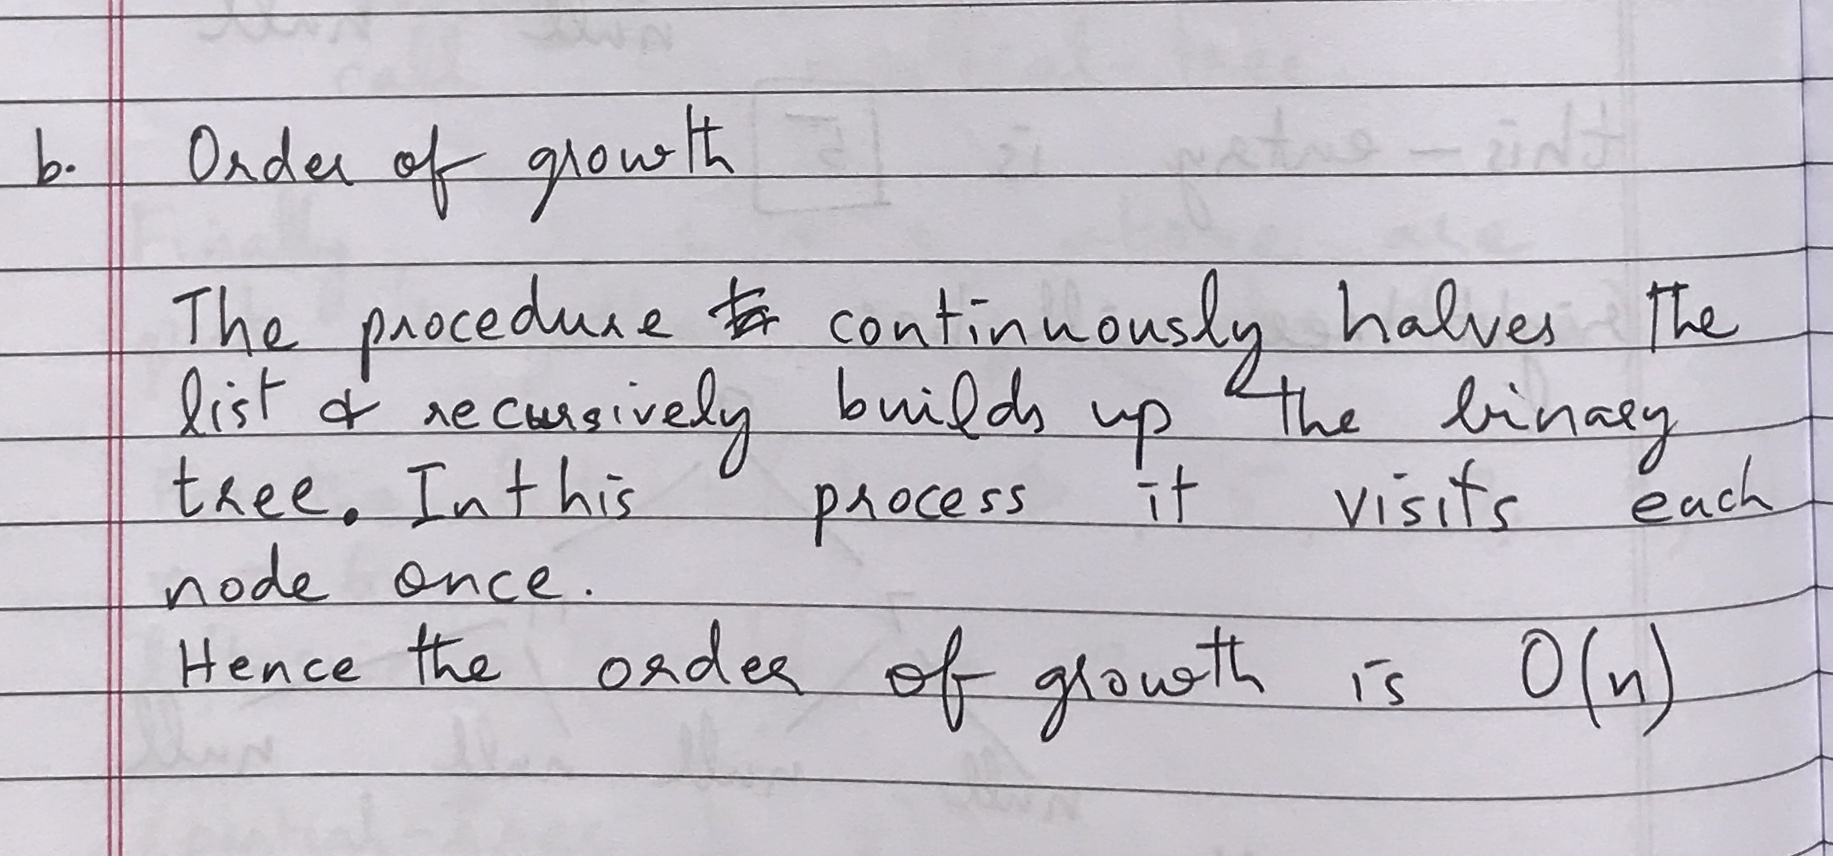 b. Order of growth
The procedure continuously halves the
list & recursively builds up the binary
tree. In this process it visits each
node once.
Hence the order of growth is O(n)